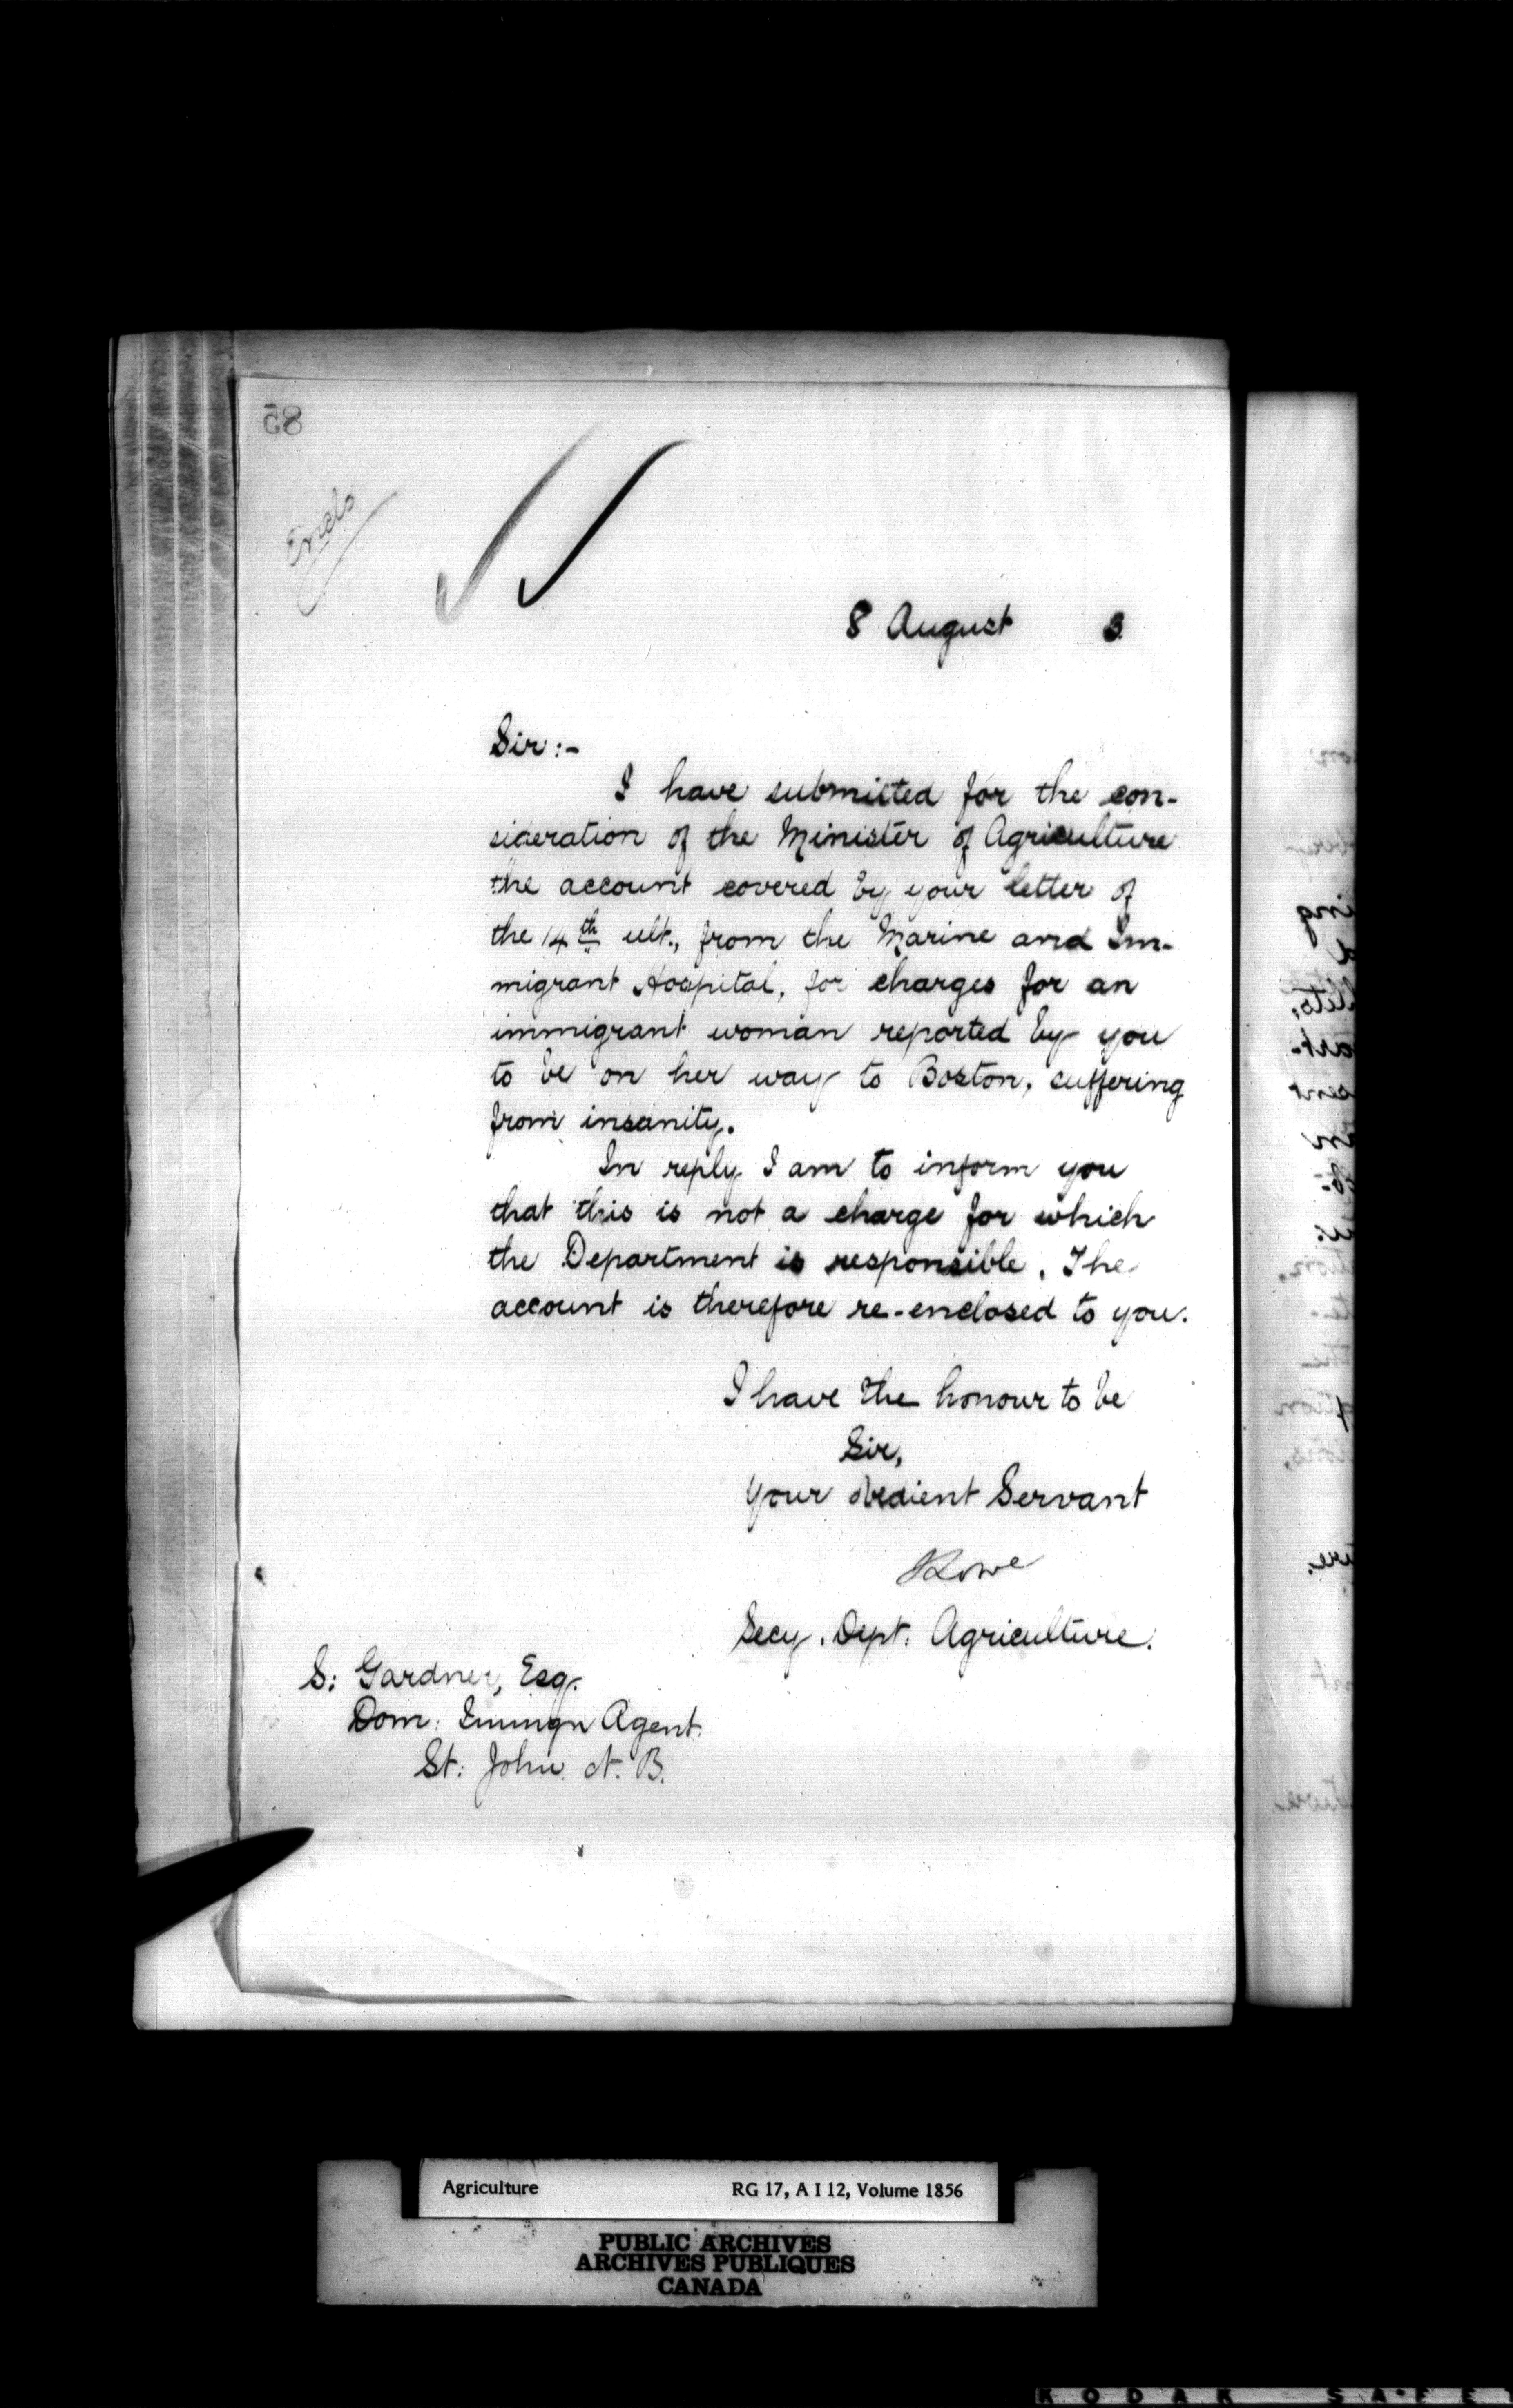 85
Encls
8 August 3
Sir:-
I have submitted for the con-
sideration of the Minister of Agriculture
the account covered by your letter of
the 14th ult., from the Marine and Im-
migrant Hospital, for charges for an
immigrant woman reported by you
to be on her way to Boston, suffering
from insanity.
In reply I am to inform you
that this is not a charge for which
the Department is responsible. The
account is therefore re-enclosed to you.
I have the honour to be
Sir,
Your obedient Servant
JLowe
Secy. Dept: Agriculture.
S: Gardner, Esq.
Dom: Immign Agent.
St: John. N. B.
Agriculture RG 17, A I 12, Volume 1856
PUBLIC ARCHIVES
ARCHIVES PUBLIQUES
CANADA
KODAK SAFE